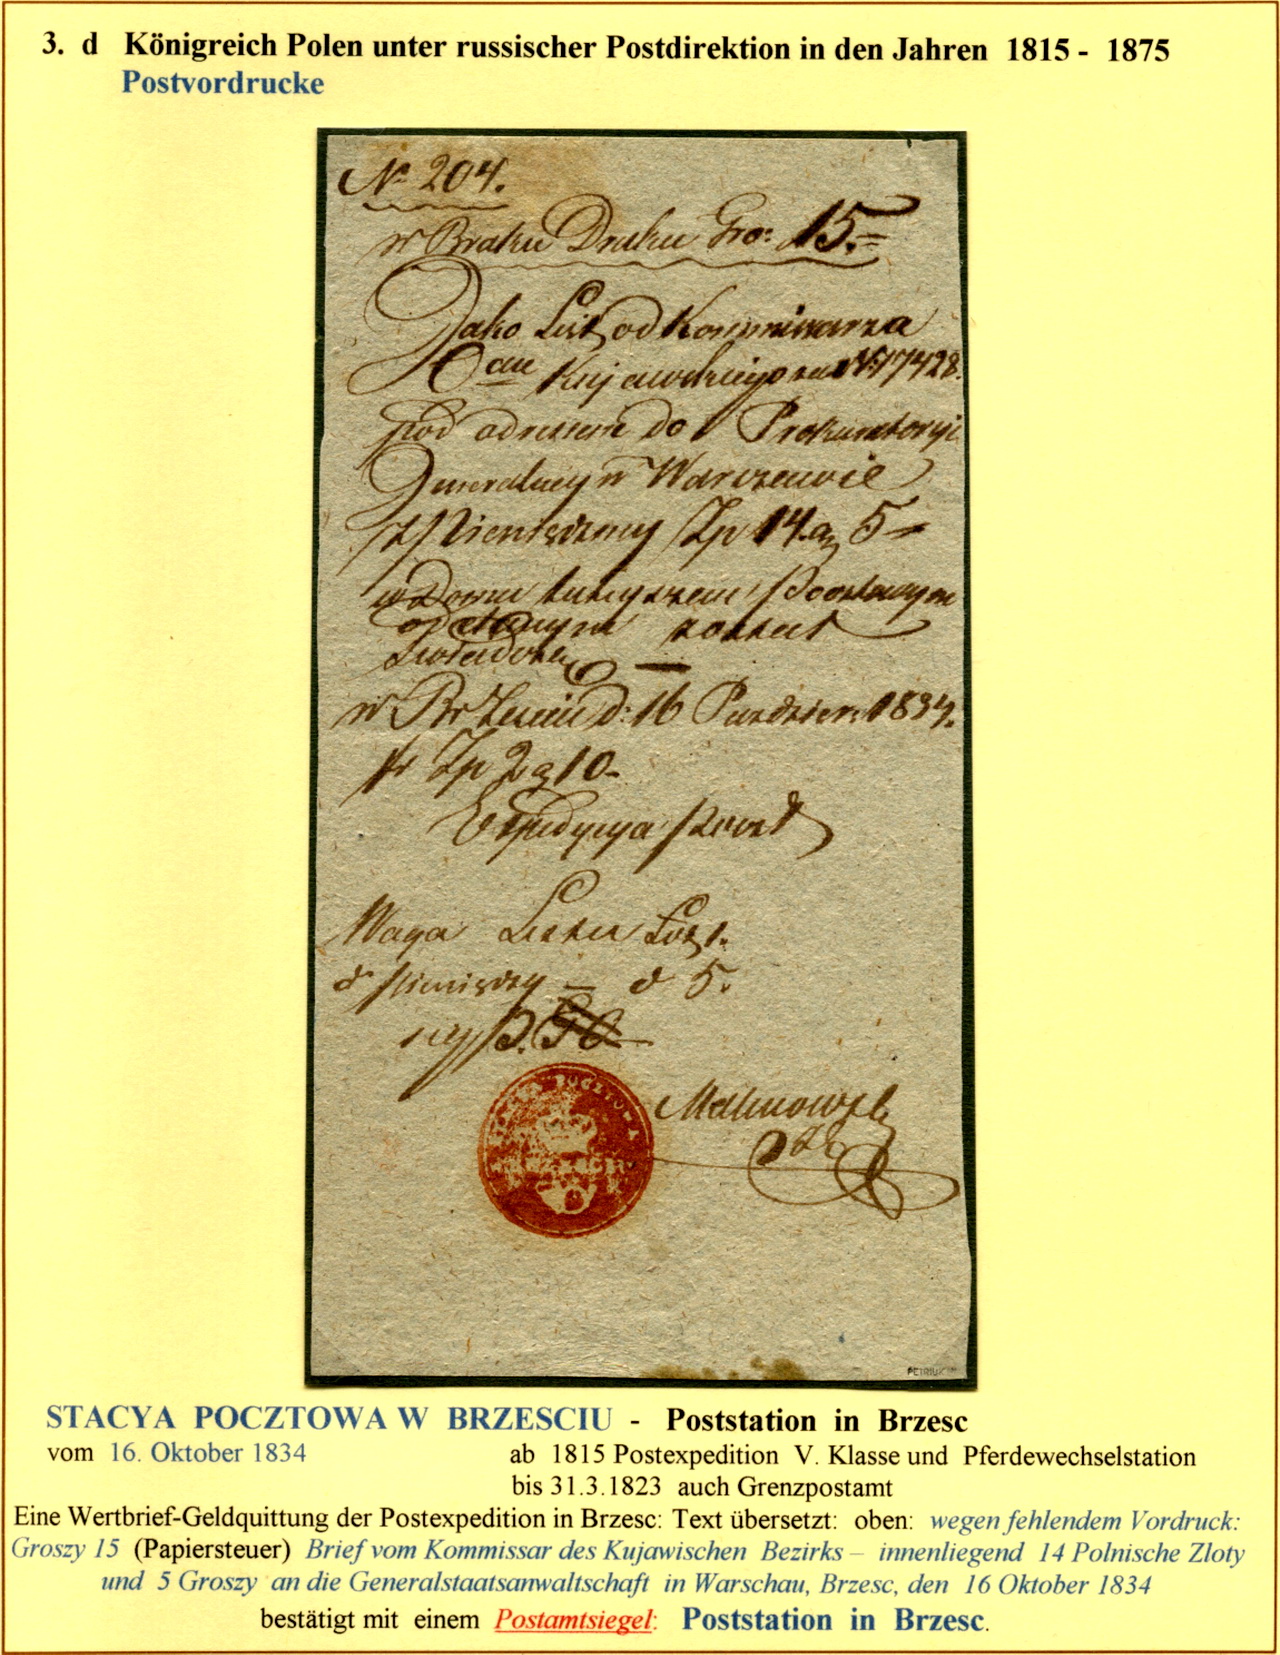 3. d Königreich Polen unter russischer Postdirektion in den Jahren 1815 - 1875
Postvordrucke
No 204.
w Braku Druku Gro: 15.=
Jako List od Kommissarza
Kujawskiego za N: 17428.
pod adressem do Prokuratoryi
Generalney w Warszawie
z Pieniędzmy Zp 14. g 5
w Domu tuteyszem Pocztowym
oddanym został
w Brzesciu d: 16 Pazdzier: 1834.
Zp 2 g 10.
Expedycya Poczt
Waga Listu Łót 1.
d° Pieniędzy — d 5.
Malinowski
STACYA POCZTOWA
W BRZESCIU
PETRIUK
STACYA POCZTOWA W BRZESCIU - Poststation in Brzesc
vom 16. Oktober 1834 ab 1815 Postexpedition V. Klasse und Pferdewechselstation
bis 31.3.1823 auch Grenzpostamt
Eine Wertbrief-Geldquittung der Postexpedition in Brzesc: Text übersetzt: oben: wegen fehlendem Vordruck:
Groszy 15 (Papiersteuer) Brief vom Kommissar des Kujawischen Bezirks – innenliegend 14 Polnische Zloty
und 5 Groszy an die Generalstaatsanwaltschaft in Warschau, Brzesc, den 16 Oktober 1834
bestätigt mit einem Postamtsiegel: Poststation in Brzesc.